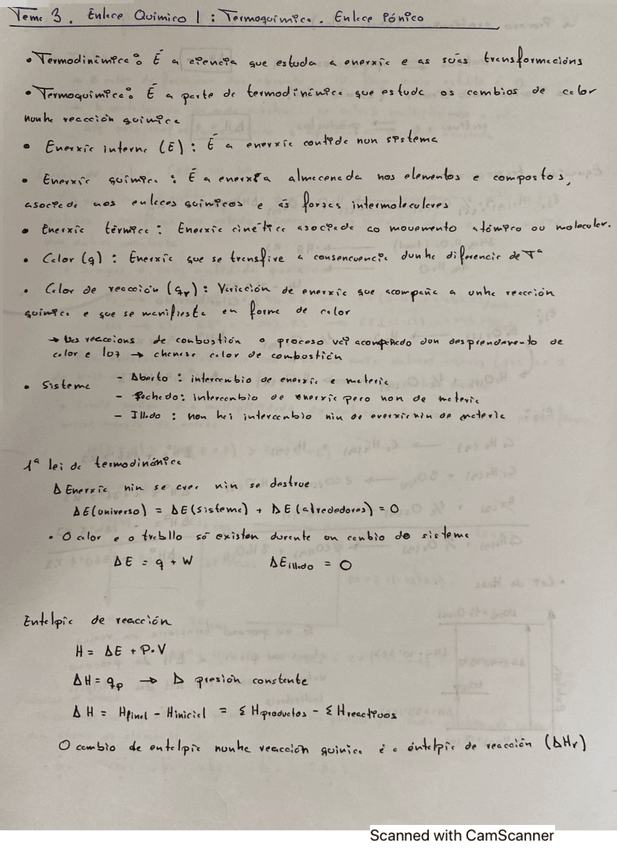 Tema 3. Enlace Químico I : Termoquímica. Enlace Iónico
• Termodinámica: É a ciencia que estuda a enerxía e as súas transformacións
• Termoquímica: É a parte da termodinámica que estuda os cambios de calor
nunha reacción química
• Enerxía interna (E) : É a enerxía contida nun sistema
• Enerxía química : É a enerxía almacenada nos elementos e compostos,
asociada aos enlaces químicos e ás forzas intermoleculares
• Enerxía térmica : Enerxía cinética asociada ao movemento atómico ou molecular.
• Calor (q) : Enerxía que se transfire a consecuencia dunha diferencia de Tª
• Calor de reacción (qr) : Variación de enerxía que acompaña a unha reacción
química e que se manifiesta en forma de calor
→ Nas reaccións de combustión o proceso vai acompañado dun desprendemento de
calor e luz → chámase calor de combustión
• Sistema
- Aberto : intercambio de enerxía e materia
- Pechado: intercambio de enerxía pero non de materia
- Illado : non hai intercambio nin de enerxía nin de materia
1ª lei da termodinámica
A Enerxía nin se crea nin se destrue
ΔE(universo) = ΔE(sistema) + ΔE(alrededores) = 0
• O calor e o traballo só existen durante un cambio do sistema
ΔE = q + W ΔEillado = 0
Entalpía de reacción
H = ΔE + P·V
ΔH = qp → A presión constante
ΔH = Hfinal - Hinicial = Σ Hproductos - Σ Hreactivos
O cambio de entalpía nunha reacción química é a entalpía de reacción (ΔHr)
Scanned with CamScanner